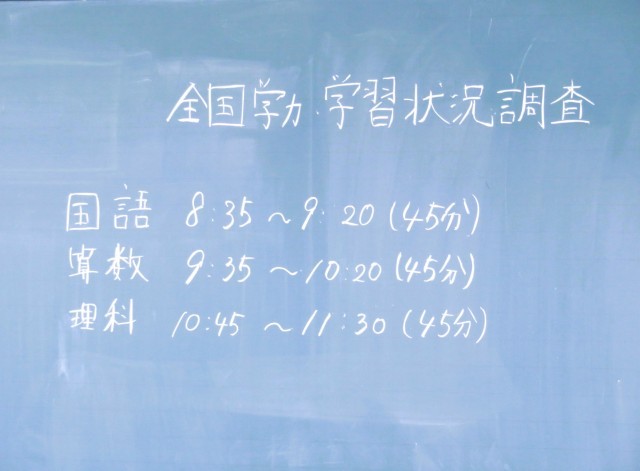 全国学力.学習状況調査
国語 8:35〜9:20(45分)
算数 9:35〜10:20(45分)
理科 10:45〜11:30(45分)